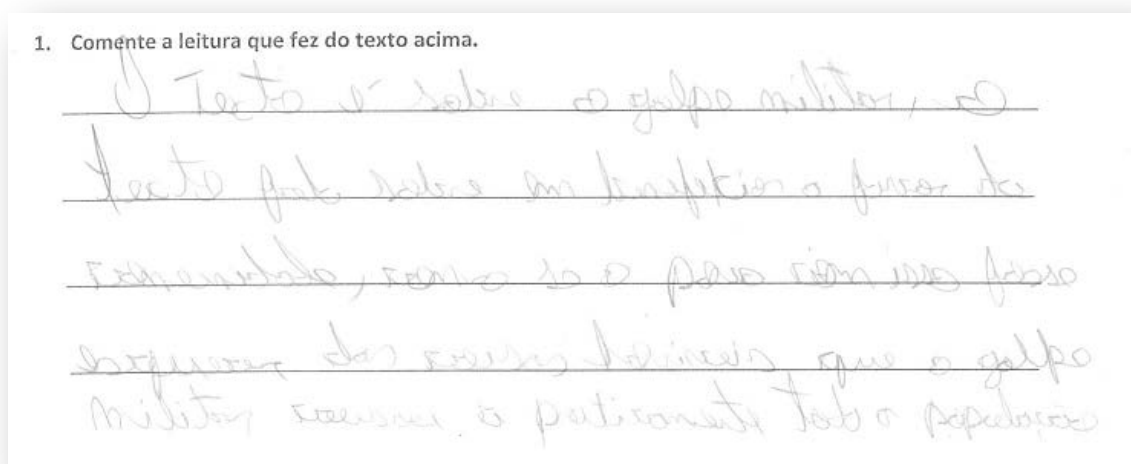 1. Comente a leitura que fez do texto acima.
O Texto é sobre o golpe militar, o
texto fala sobre em o de
comemorado, como se o povo com isso fosse
esquecer das coisas que o golpe
militar causou a praticamente toda a população